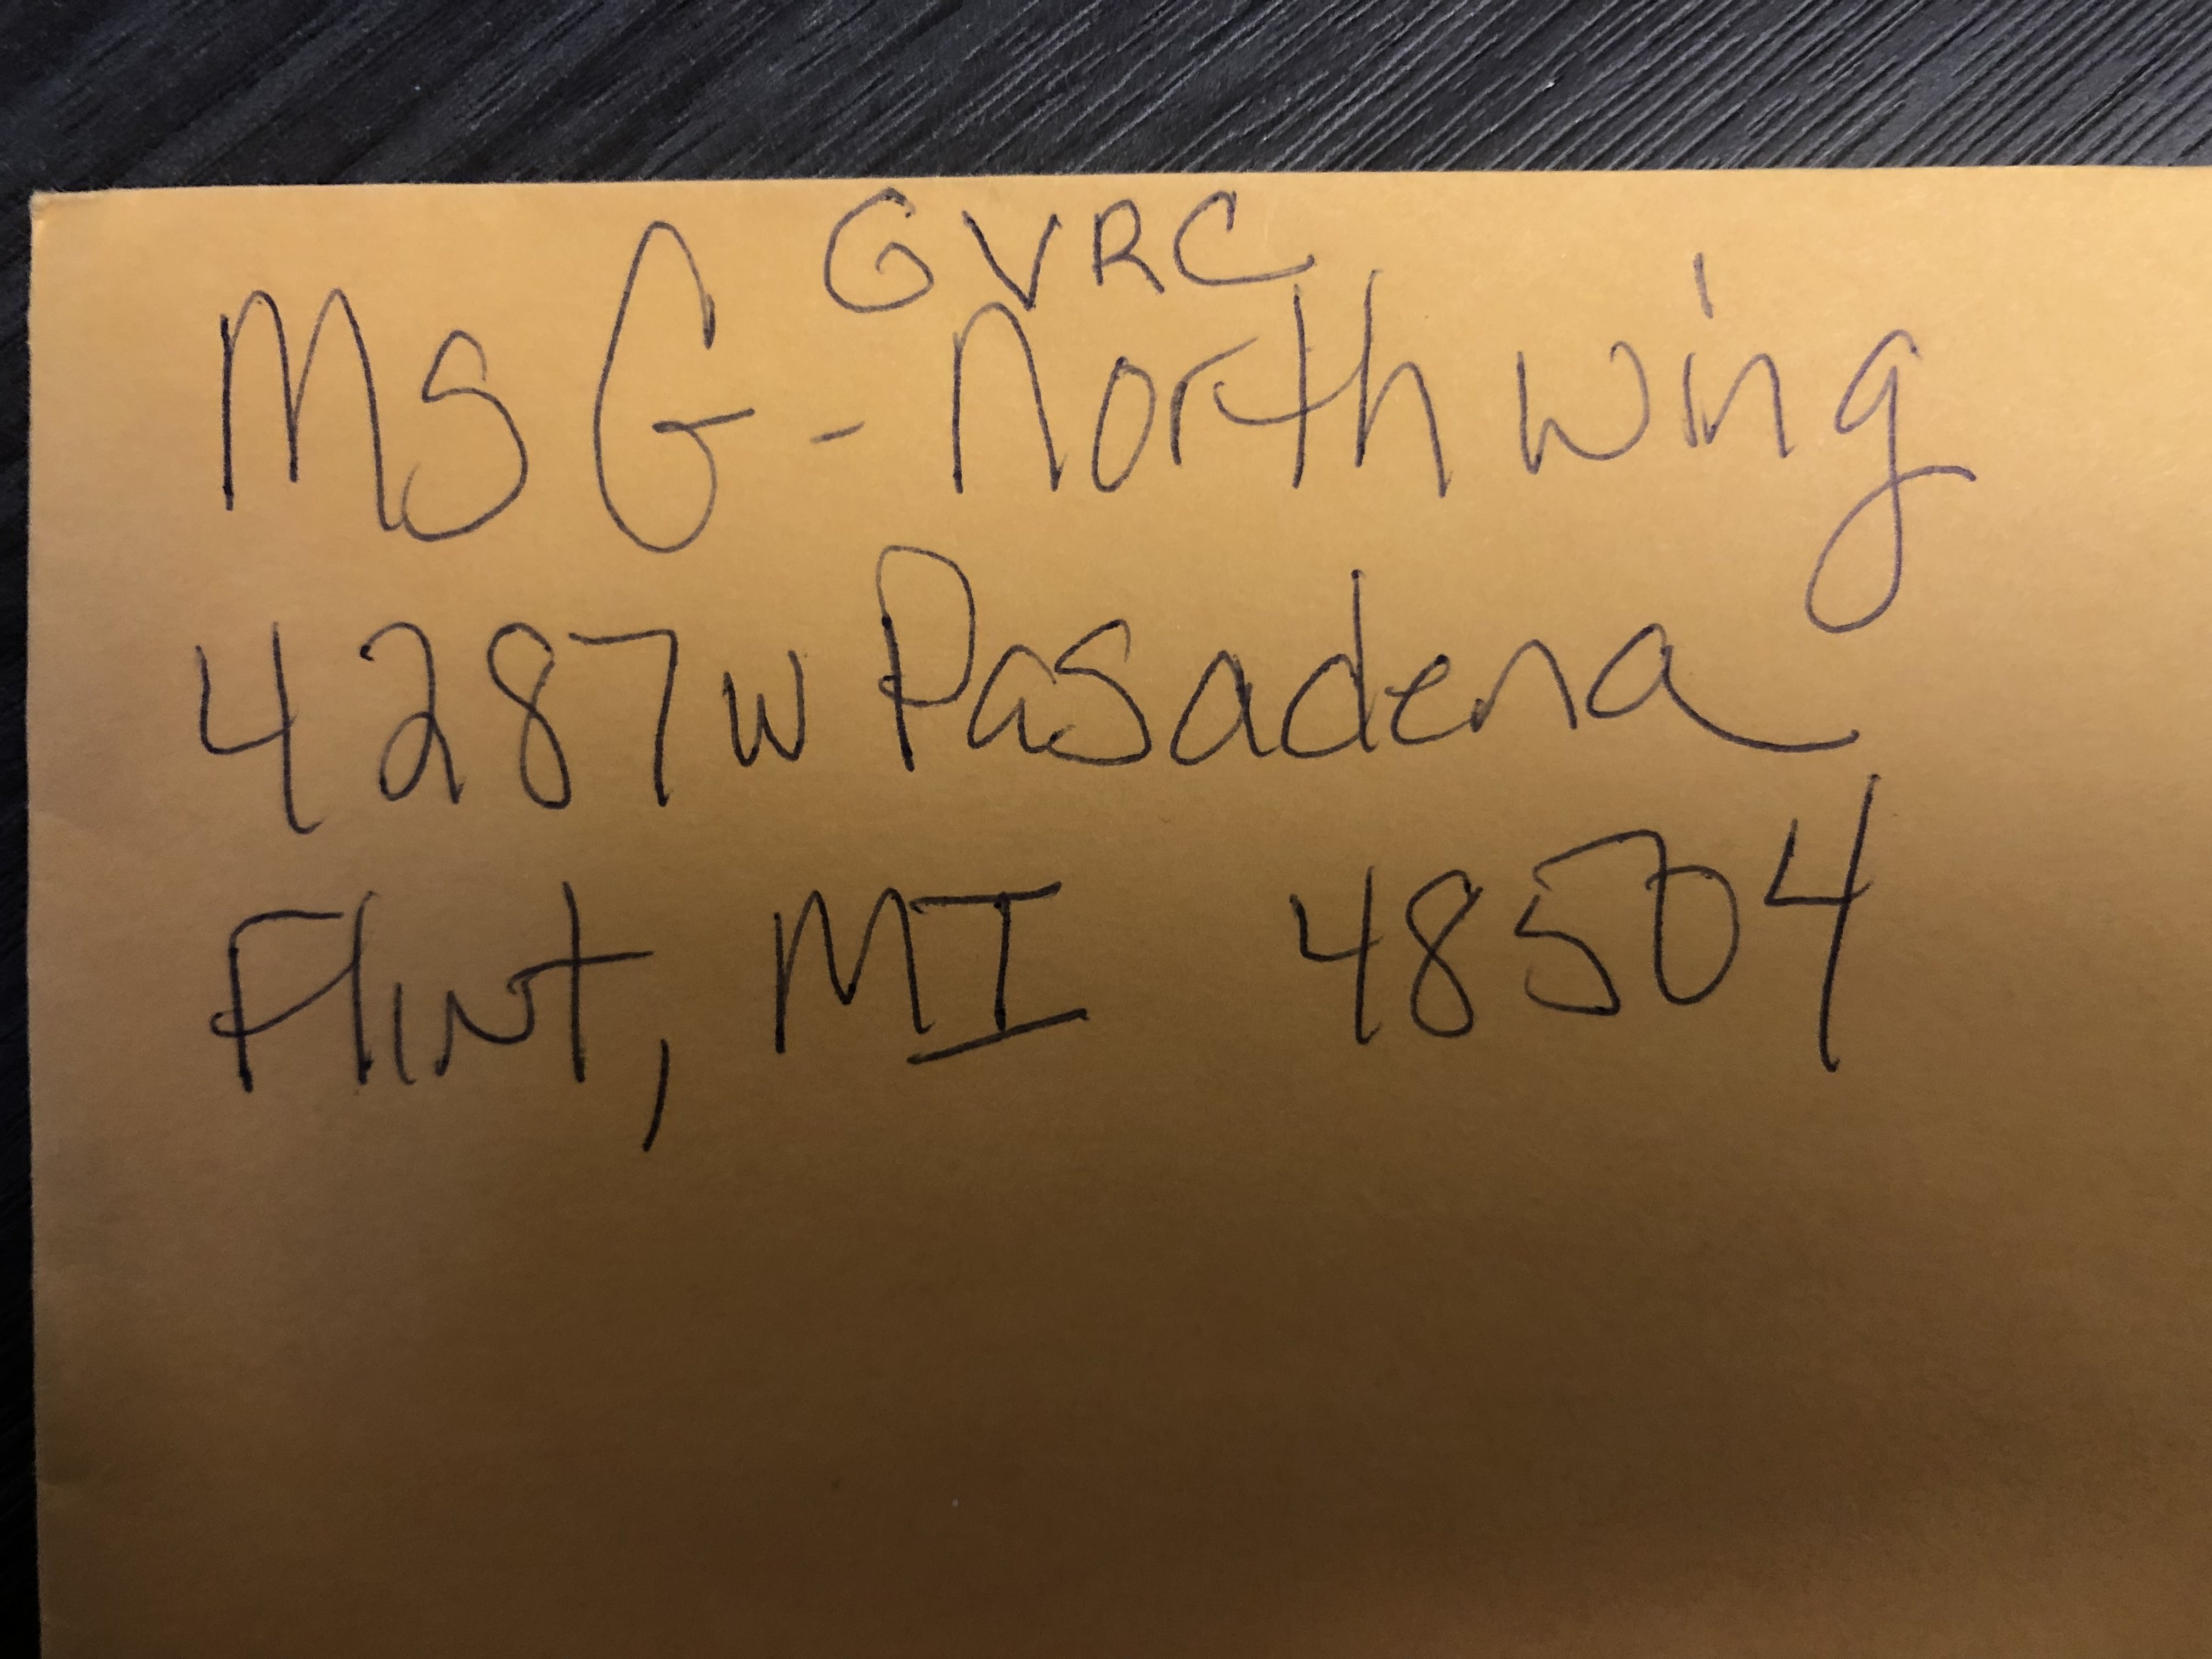 GVRC
Ms G- North wing
4287 W Pasadena
Flint, MI 48504